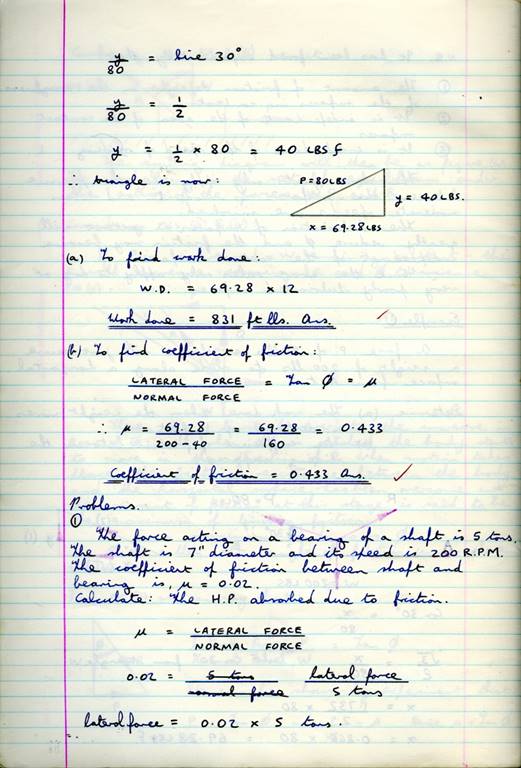 y/80 = sine 30°
y/80 = 1/2
y = 1/2 × 80 = 40 LBS f
∴ triangle is now:
P = 80 LBS
y = 40 LBS.
x = 69.28 LBS
(a) To find work done:
W.D. = 69.28 × 12
Work done = 831 ft lbs. Ans.
(b) To find coefficient of friction:
LATERAL FORCE / NORMAL FORCE = Tan Ø = μ
∴ μ = 69.28 / 200-40 = 69.28 / 160 = 0.433
Coefficient of friction = 0.433 Ans.
Problems.
①
The force acting on a bearing of a shaft is 5 tons.
The shaft is 7" diameter and its speed is 200 R.P.M.
The coefficient of friction between shaft and
bearing is, μ = 0.02.
Calculate: The H.P. absorbed due to friction.
μ = LATERAL FORCE / NORMAL FORCE
0.02 = 5 tons / normal force lateral force / 5 tons
lateral force = 0.02 × 5 tons.